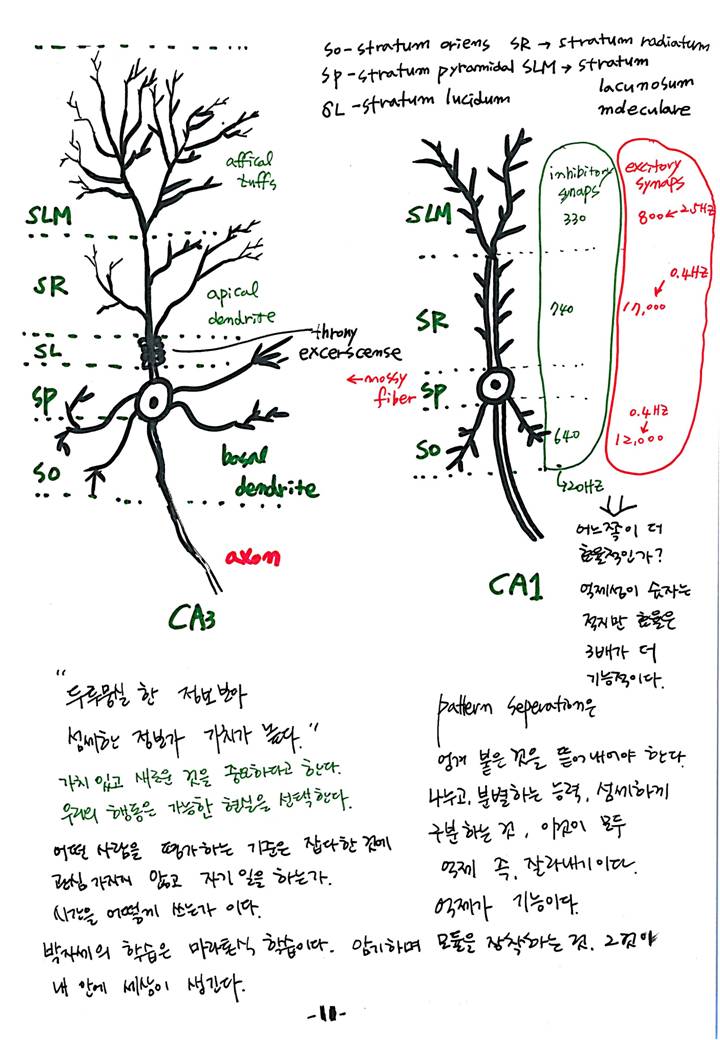 SO-stratum oriens SR → stratum radiatum
SP-stratum pyramidal SLM → stratum
lacunosum
moleculare
SL-stratum lucidum
affical
tuffs
SLM
SR
apical
dendrite
SL
throny
excerscense
←mossy
fiber
SP
SO
basal
dendrite
axon
CA3
SLM
SR
SP
SO
CA1
inhibitory
synaps
330
740
640
↳20HZ
excitory
synaps
800←25HZ
0.4HZ
17,000
0.4HZ
12,000
어느쪽이 더
효율적인가?
억제성이 숫자는
적지만 효율은
3배가 더
기능적이다.
"두루뭉실 한 정보보다
섬세한 정보가 가치가 높다."
가치 있고 새로운 것을 중요하다고 한다.
우리의 행동은 가능한 현실을 선택한다.
어떤 사람을 평가하는 기준은 잡다한 것에
관심 가지지 않고 자기 일을 하는가.
시간을 어떻게 쓰는가 이다.
pattern seperation은
엉겨 붙은 것을 뜯어내어야 한다.
나누고, 분별하는 능력, 섬세하게
구분하는 것, 이것이 모두
억제 즉, 잘라내기이다.
억제가 기능이다.
박자세의 학습은 마라톤식 학습이다. 암기하며 모듈을 장착하는 것. 그것이
내 안에 세상이 생긴다.
-11-